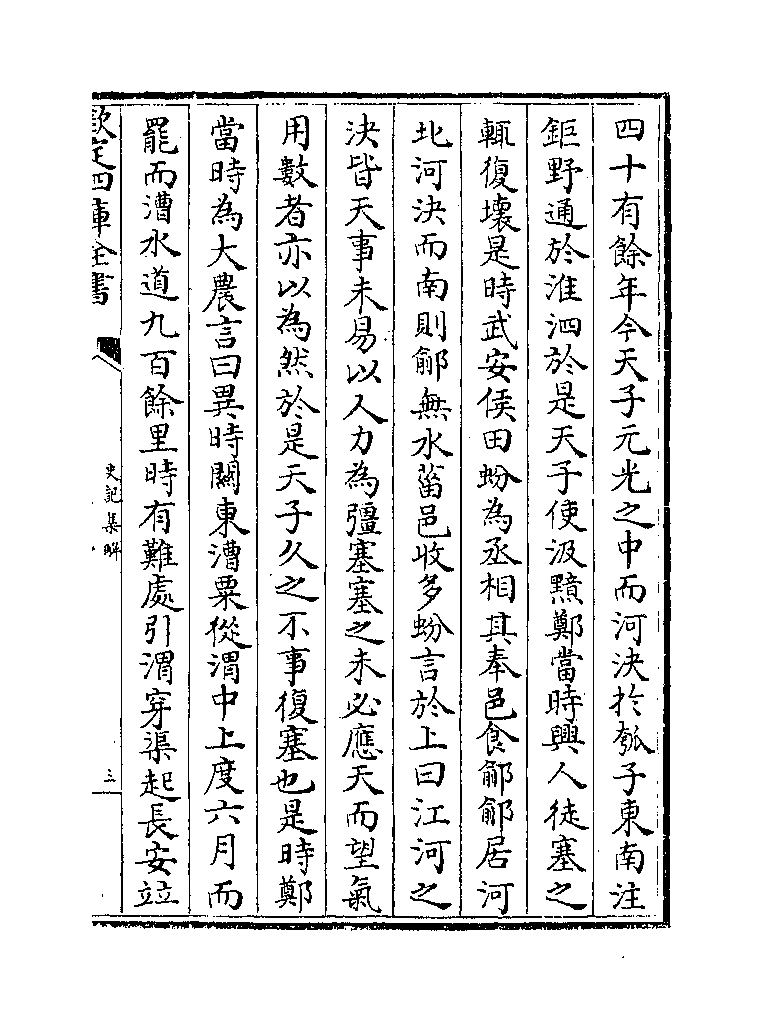 四十有餘年今天子元光之中而河決於瓠子東南注
鉅野通於淮泗於是天子使汲黯鄭當時興人徒塞之
輒復壞是時武安侯田蚡為丞相其奉邑食鄃鄃居河
北河決而南則鄃無水菑邑收多蚡言於上曰江河之
決皆天事未易以人力為彊塞塞之未必應天而望氣
用數者亦以為然於是天子久之不事復塞也是時鄭
當時為大農言曰異時關東漕粟從渭中上度六月而
罷而漕水道九百餘里時有難處引渭穿渠起長安竝
欽定四庫全書
史記集解
三